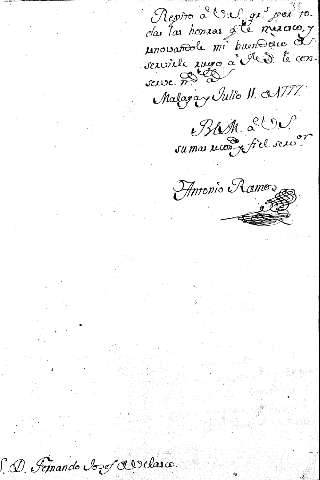 Repito a V.S. grs. por to-
das las honras q.e le merezco, y
renovandole mi buen deseo de
servirle ruego a Ds. le con-
serve ms. as.
Malaga y Julio 11. de 1777.
B.L.M. a V.S.
su mas recon.do y fiel serv.or
Antonio Ramos
S. D. Fernando Josef de Velasco.